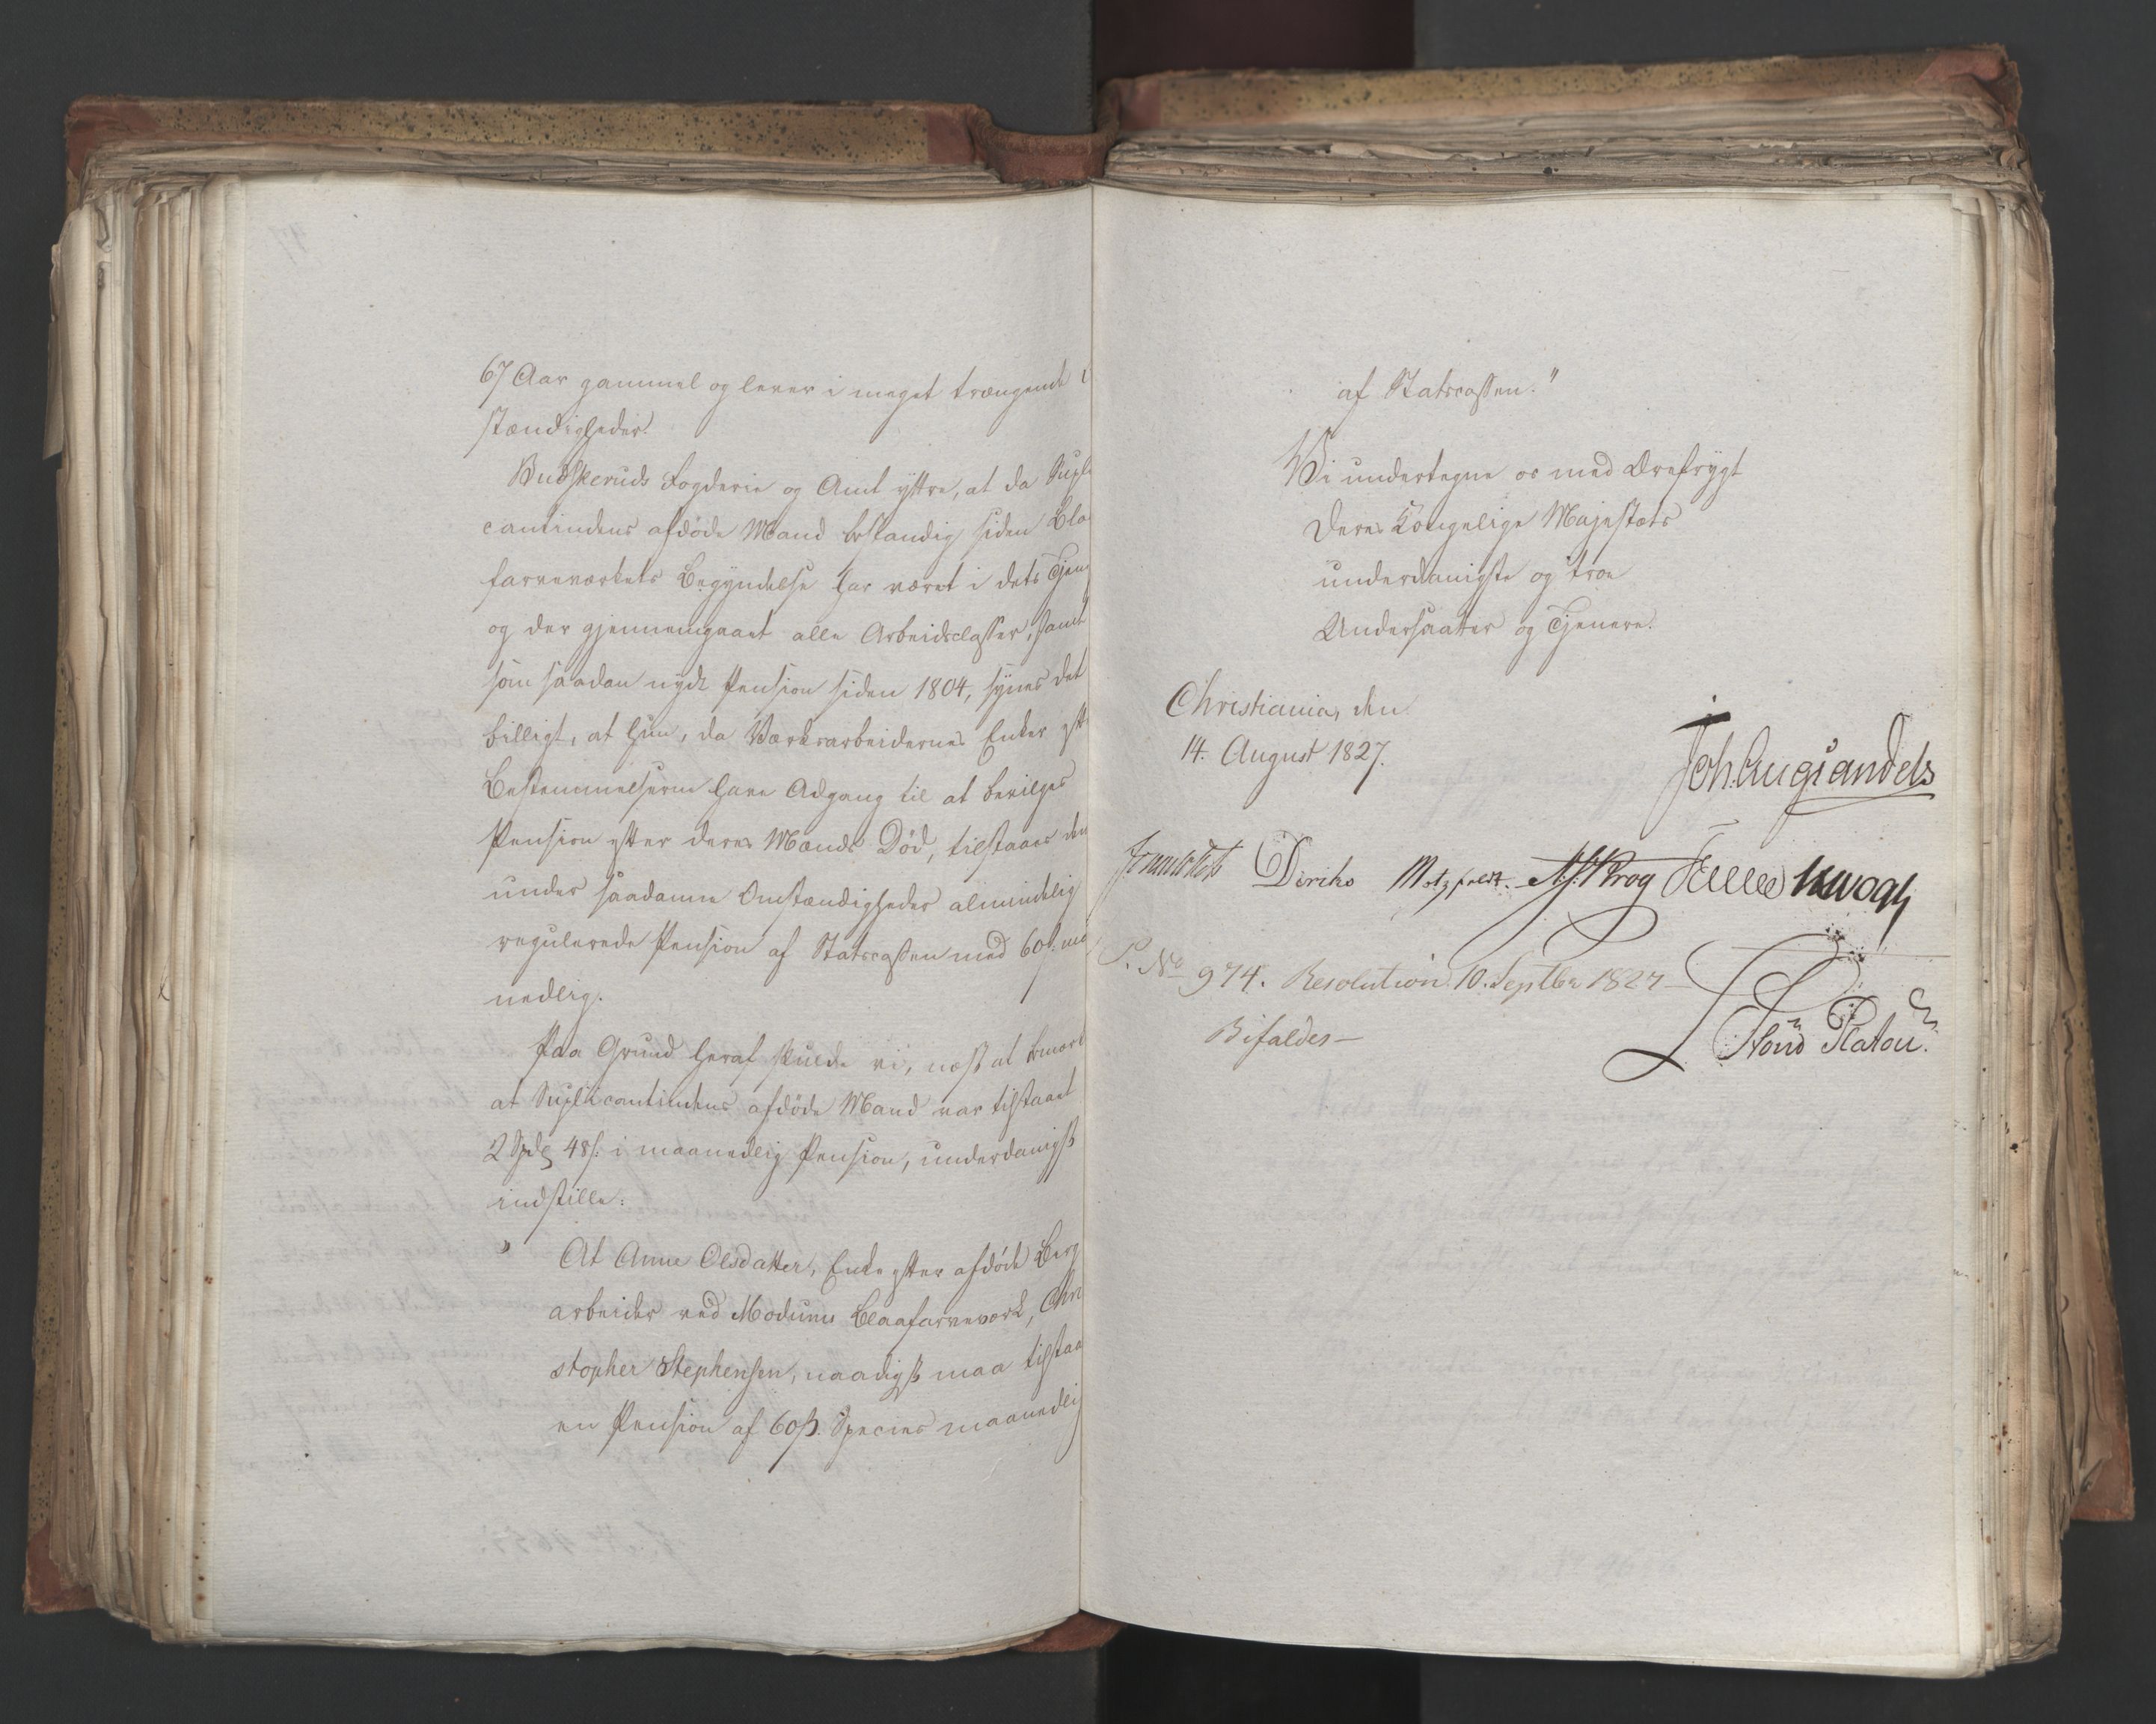 67 Aar gammel og lever i meget trængende
stændigheder.
Budskeruds Fogderie og Amt yttre, at da Supli
cantindens afdöde Mand bestandig siden Bla
farveværkets Begyndelse har været i dets Tjen
og der gjennemgaaet alle Arbeidsclasser, samt
som saadan nydt Pension siden 1804, synes det
billigt, at hun, da Værksarbeidernes Enker eft
Bestemmelserne have Adgang til at bevilges
Pension efter deres Mænds Död, tilstaaes den
under saadanne Omstændigheder almindelig
regulerede Pension af Statscassen med 60 s. maa
nedlig.
Paa Grund heraf skulde vi, næst at bemærk
at Suplicantindens afdöde Mand var tilstaaet
2 Spd 48 s. i maanedlig Pension, underdanigst
indstille:
" At Anne Olsdatter, Enke efter afdöde Berg
arbeider ved Modums Blaafarveværk, Chri
stopher Stephensen, naadigst maa tilstaa
en Pension af 60 s. Species maanedlig
af Statscassen."
Vi undertegne os med Ærefrygt
Deres Kongelige Majestæts
underdanigste og troe
Undersaatter og Tjenere.
Christiania, den
14. August 1827.
Joh. Aug. Sandels
Diriks Motzfeldt. Krog JCollett
P. No 974. Resolution 10. Septbr 1827
Bifaldes —
Platou.